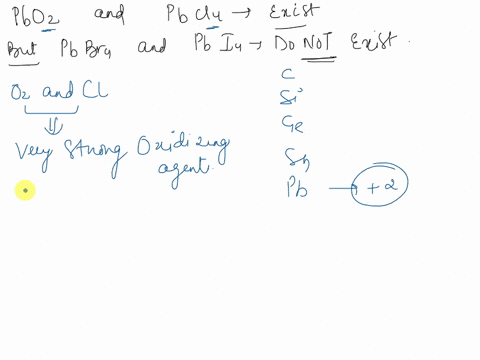 PbO2 and PbCl4 → Exist
But PbBr4 and PbI4 → Do NOT Exist.
O2 and Cl
⇓
Very Strong Oxidizing agent.
C
Si
Ge
Sn
Pb → +2